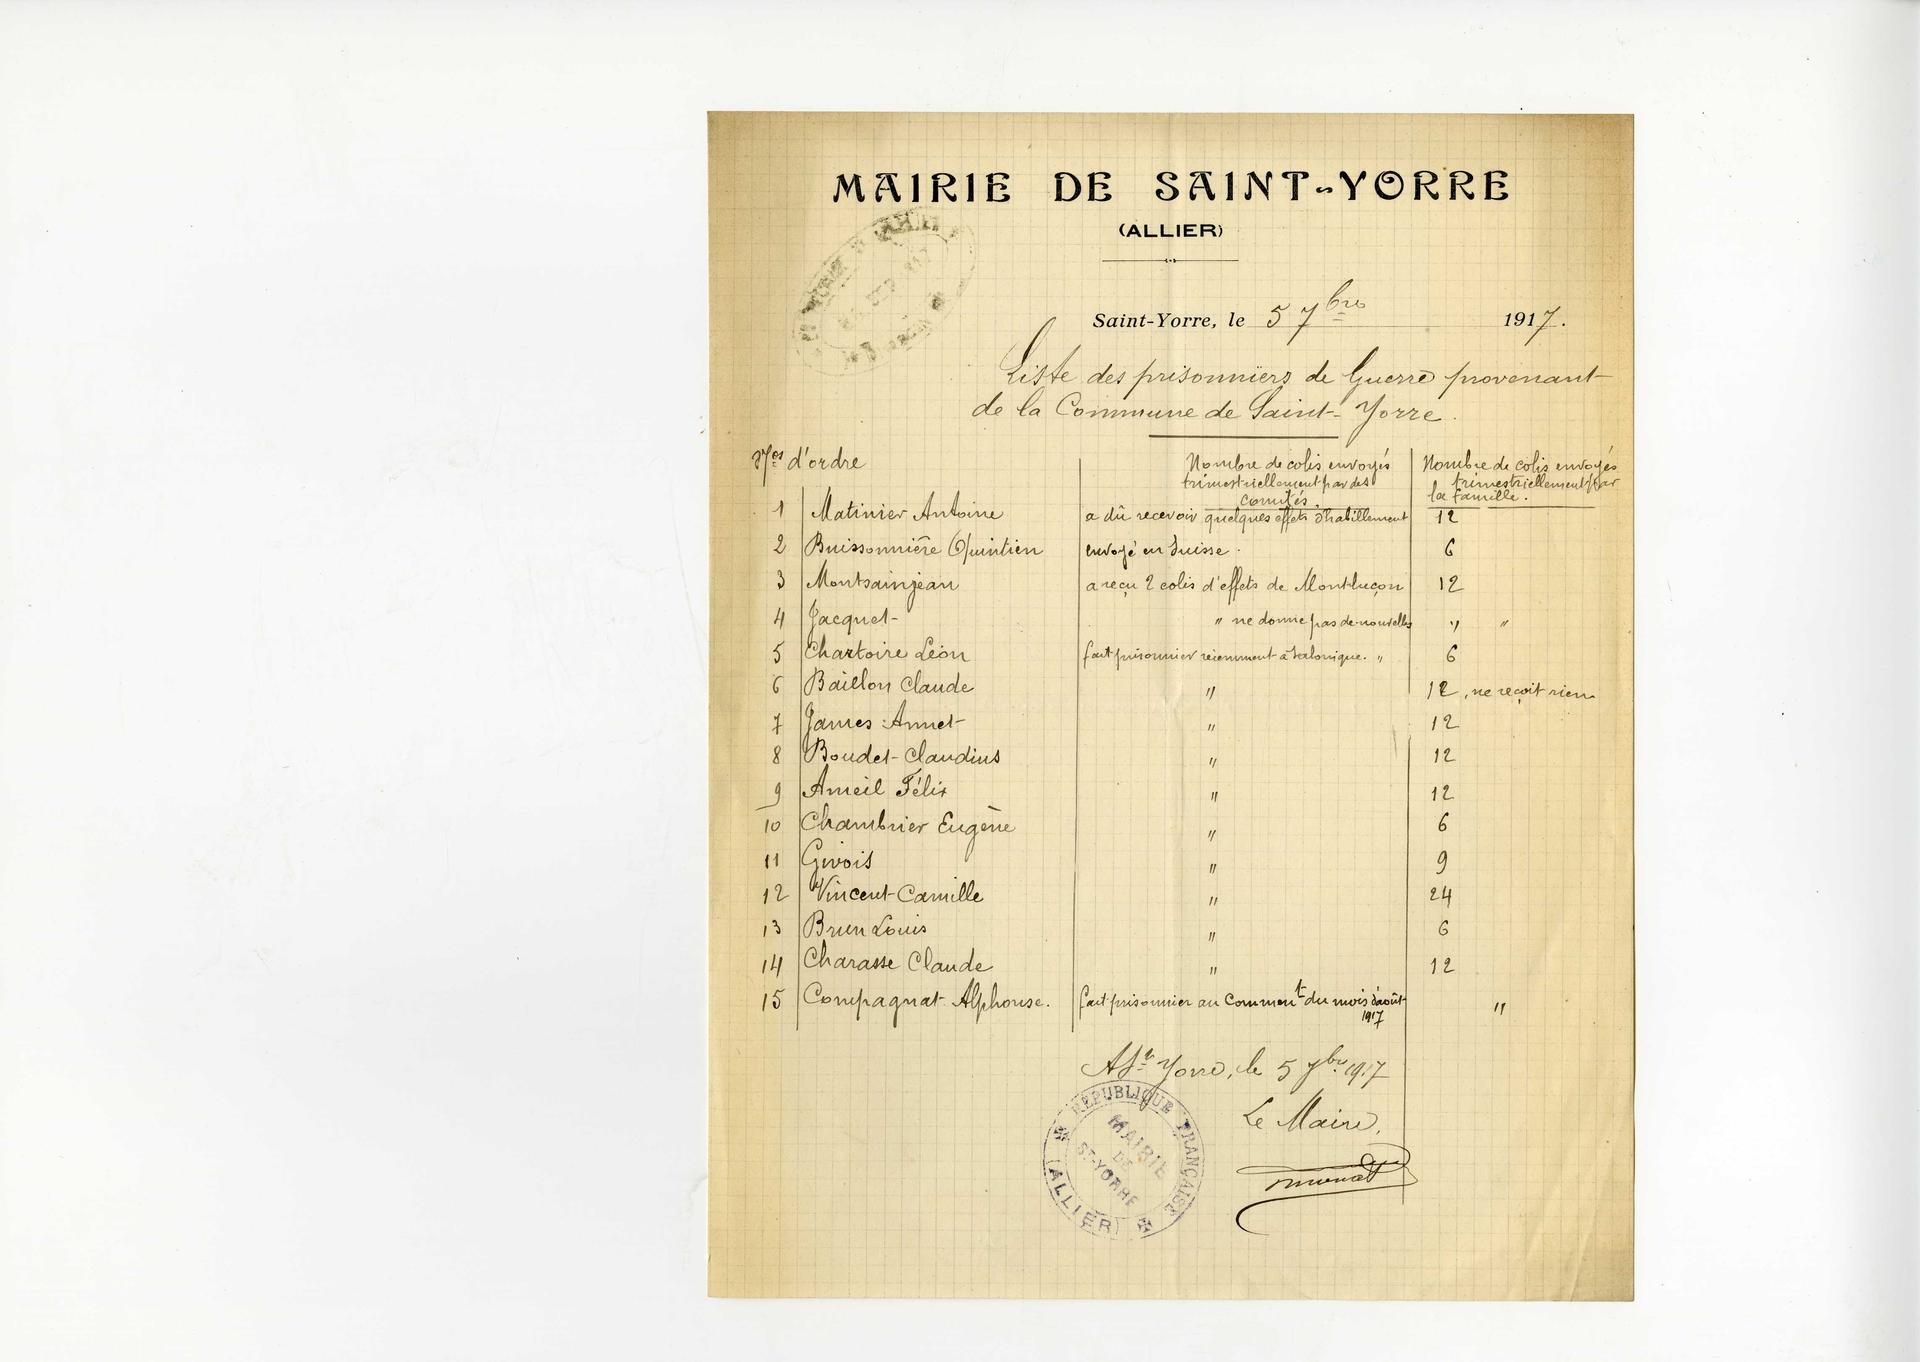 MAIRIE DE SAINT-YORRE
(ALLIER)
Saint-Yorre, le 5 7bre 1917.
Liste des prisonniers de Guerre provenant
de la Commune de Saint-Yorre.
Nos d'ordre
Nombre de colis envoyés
trimestriellement par des
comités.
Nombre de colis envoyés
trimestriellement par
la famille.
1 Matinier Antoine a dû recevoir quelques effets d'habillement 12
2 Buissonnière Quintien envoyé en Suisse. 6
3 Montsainjean a reçu 2 colis d'effets de Montluçon 12
4 Jacquet " ne donne pas de nouvelles " "
5 Chartoire Léon fait prisonnier récemment à Salonique. " 6
6 Baillon Claude " 12, ne reçoit rien
7 James Annet " 12
8 Boudet Claudius " 12
9 Ameil Félix " 12
10 Chambrier Eugène " 6
11 Givois " 9
12 Vincent Camille " 24
13 Brun Louis " 6
14 Charasse Claude " 12
15 Compagnat Alphonse. fait prisonnier au Comment du mois d'août "
1917
A St Yorre, le 5 7bre 1917
Le Maire,
RÉPUBLIQUE FRANÇAISE
MAIRIE
DE
ST-YORRE
(ALLIER)